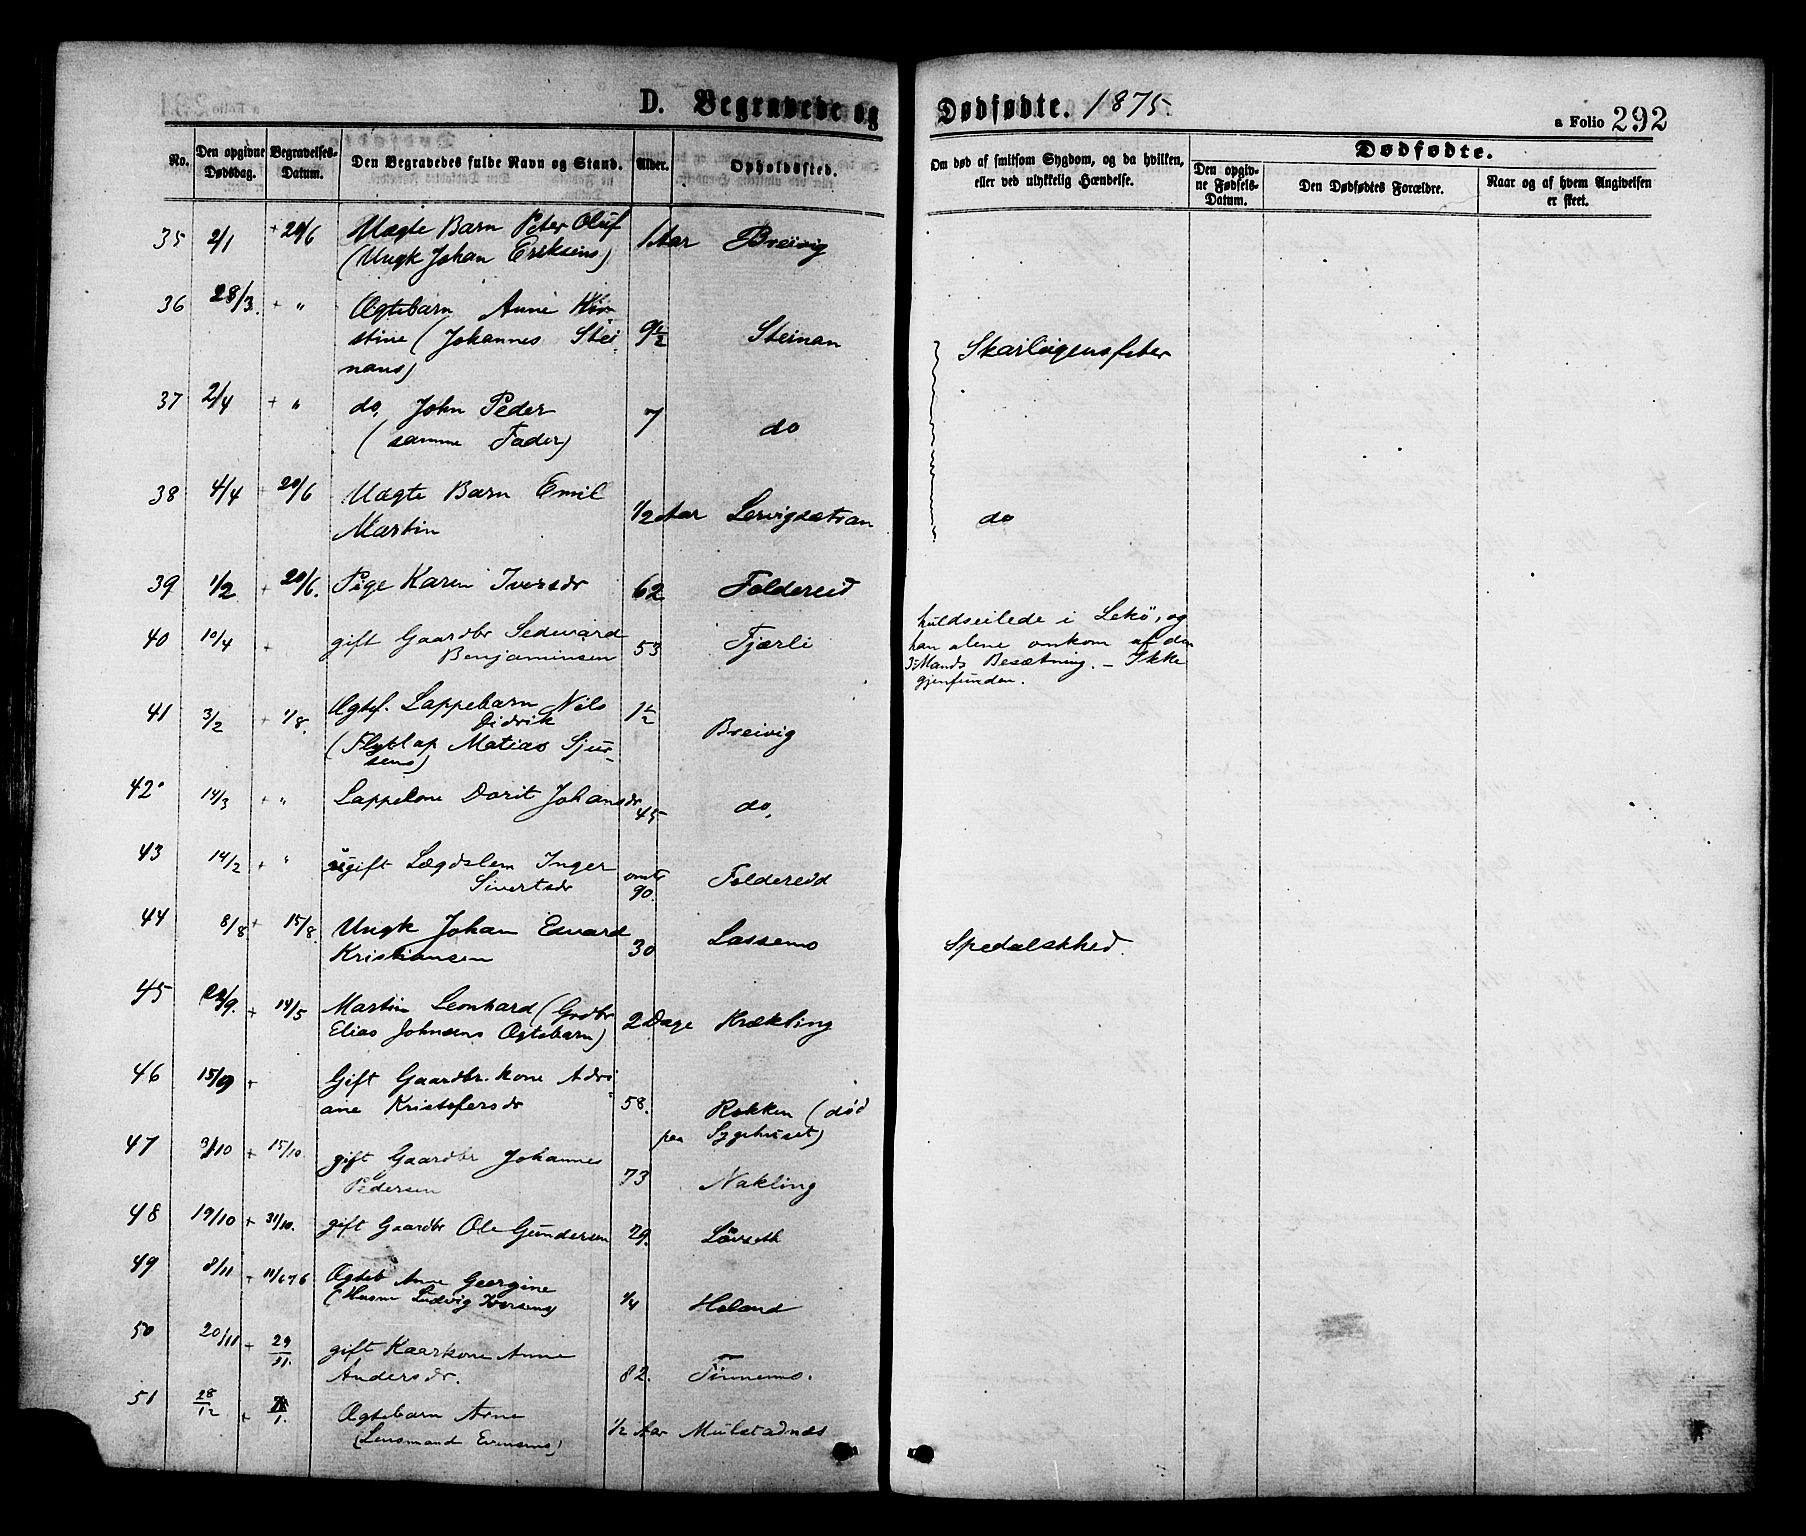 D. Begravede og Dødfødte. 1875
a Folio 292
No. Den opgivne Dødsdag. Begravelses-Datum. Den Begravedes fulde Navn og Stand. Alder. Opholdssted.
Om død af smitsom Sygdom, og da hvilken, eller ved ulykkelig Hændelse.
Dødfødte.
Den opgivne Fødsels-Datum. Den Dødfødtes Forældre. Naar og af hvem Angivelsen er skeet.
35 2/1 + 20/6 Uægte Barn Peter Oluf 1 Aar Breivig
(Ungk Johan Eriksens)
36 28/3. + " Ægtebarn Anne Kir-
stine (Johannes Stei- 9 1/2 Steinan Skarlagensfeber
nans)
37 2/4 + " do, John Peder 7 do
(samme Fader)
38 4/4 + 20/6 Uægte Barn Emil
Martin 1/2 Aar Lervigsætran do
39 1/2 + 20/6. Pige Karen Iversdr 62 Foldereid
40 10/4 + gift Gaardbr Sedevard 53 Fjærli huldseilede i Lekö, og
Benjaminsen han alene omkom af den
3 Mands Besætning. - Ikke
gjenfunden.
41 3/2 + 1/8. Ægtef. Lappebarn Nils 1 1/2
Didrik Breivig
(Flytlap Matias Sjur-
sens)
42 14/3 + " Lappekone Dorit Johansdr 45 do,
43 14/2 + " ugift Lægdslem Inger omtr
Sivertsdr 90. Foldereid
44 8/8 + 15/8. Ungk Johan Edvard 30 Lassemo Spedalskhed.
Kristiansen
45 /9. + 14/5 Martin Leonhard (Grdbr
Elias Johnsens Ægtebarn) 2 Dage Krækling
46 15/9 + Gift Gaardbr.kone Adri-
ane Kristofersdr 58. Rokken (død
paa Sygehuset)
47 3/10 + 15/10. gift Gaardbr Johannes
Pedersen 73 Nakling
48 19/10 + 31/10. gift Gaardbr Ole Gundersen 29. Lövseth
49 8/11 + 11/6 76 Ægteb Anne Georgine
(Husm Ludvig Iversens) 1/4 Höland
50 20/11 + 29/11. gift Kaarkone Anne
Andersdr. 82. Finnemo.
51 28/12 + /1. Ægtebarn Arne
(Lensmand Evensens) 1/2 Aar Mulstadnes